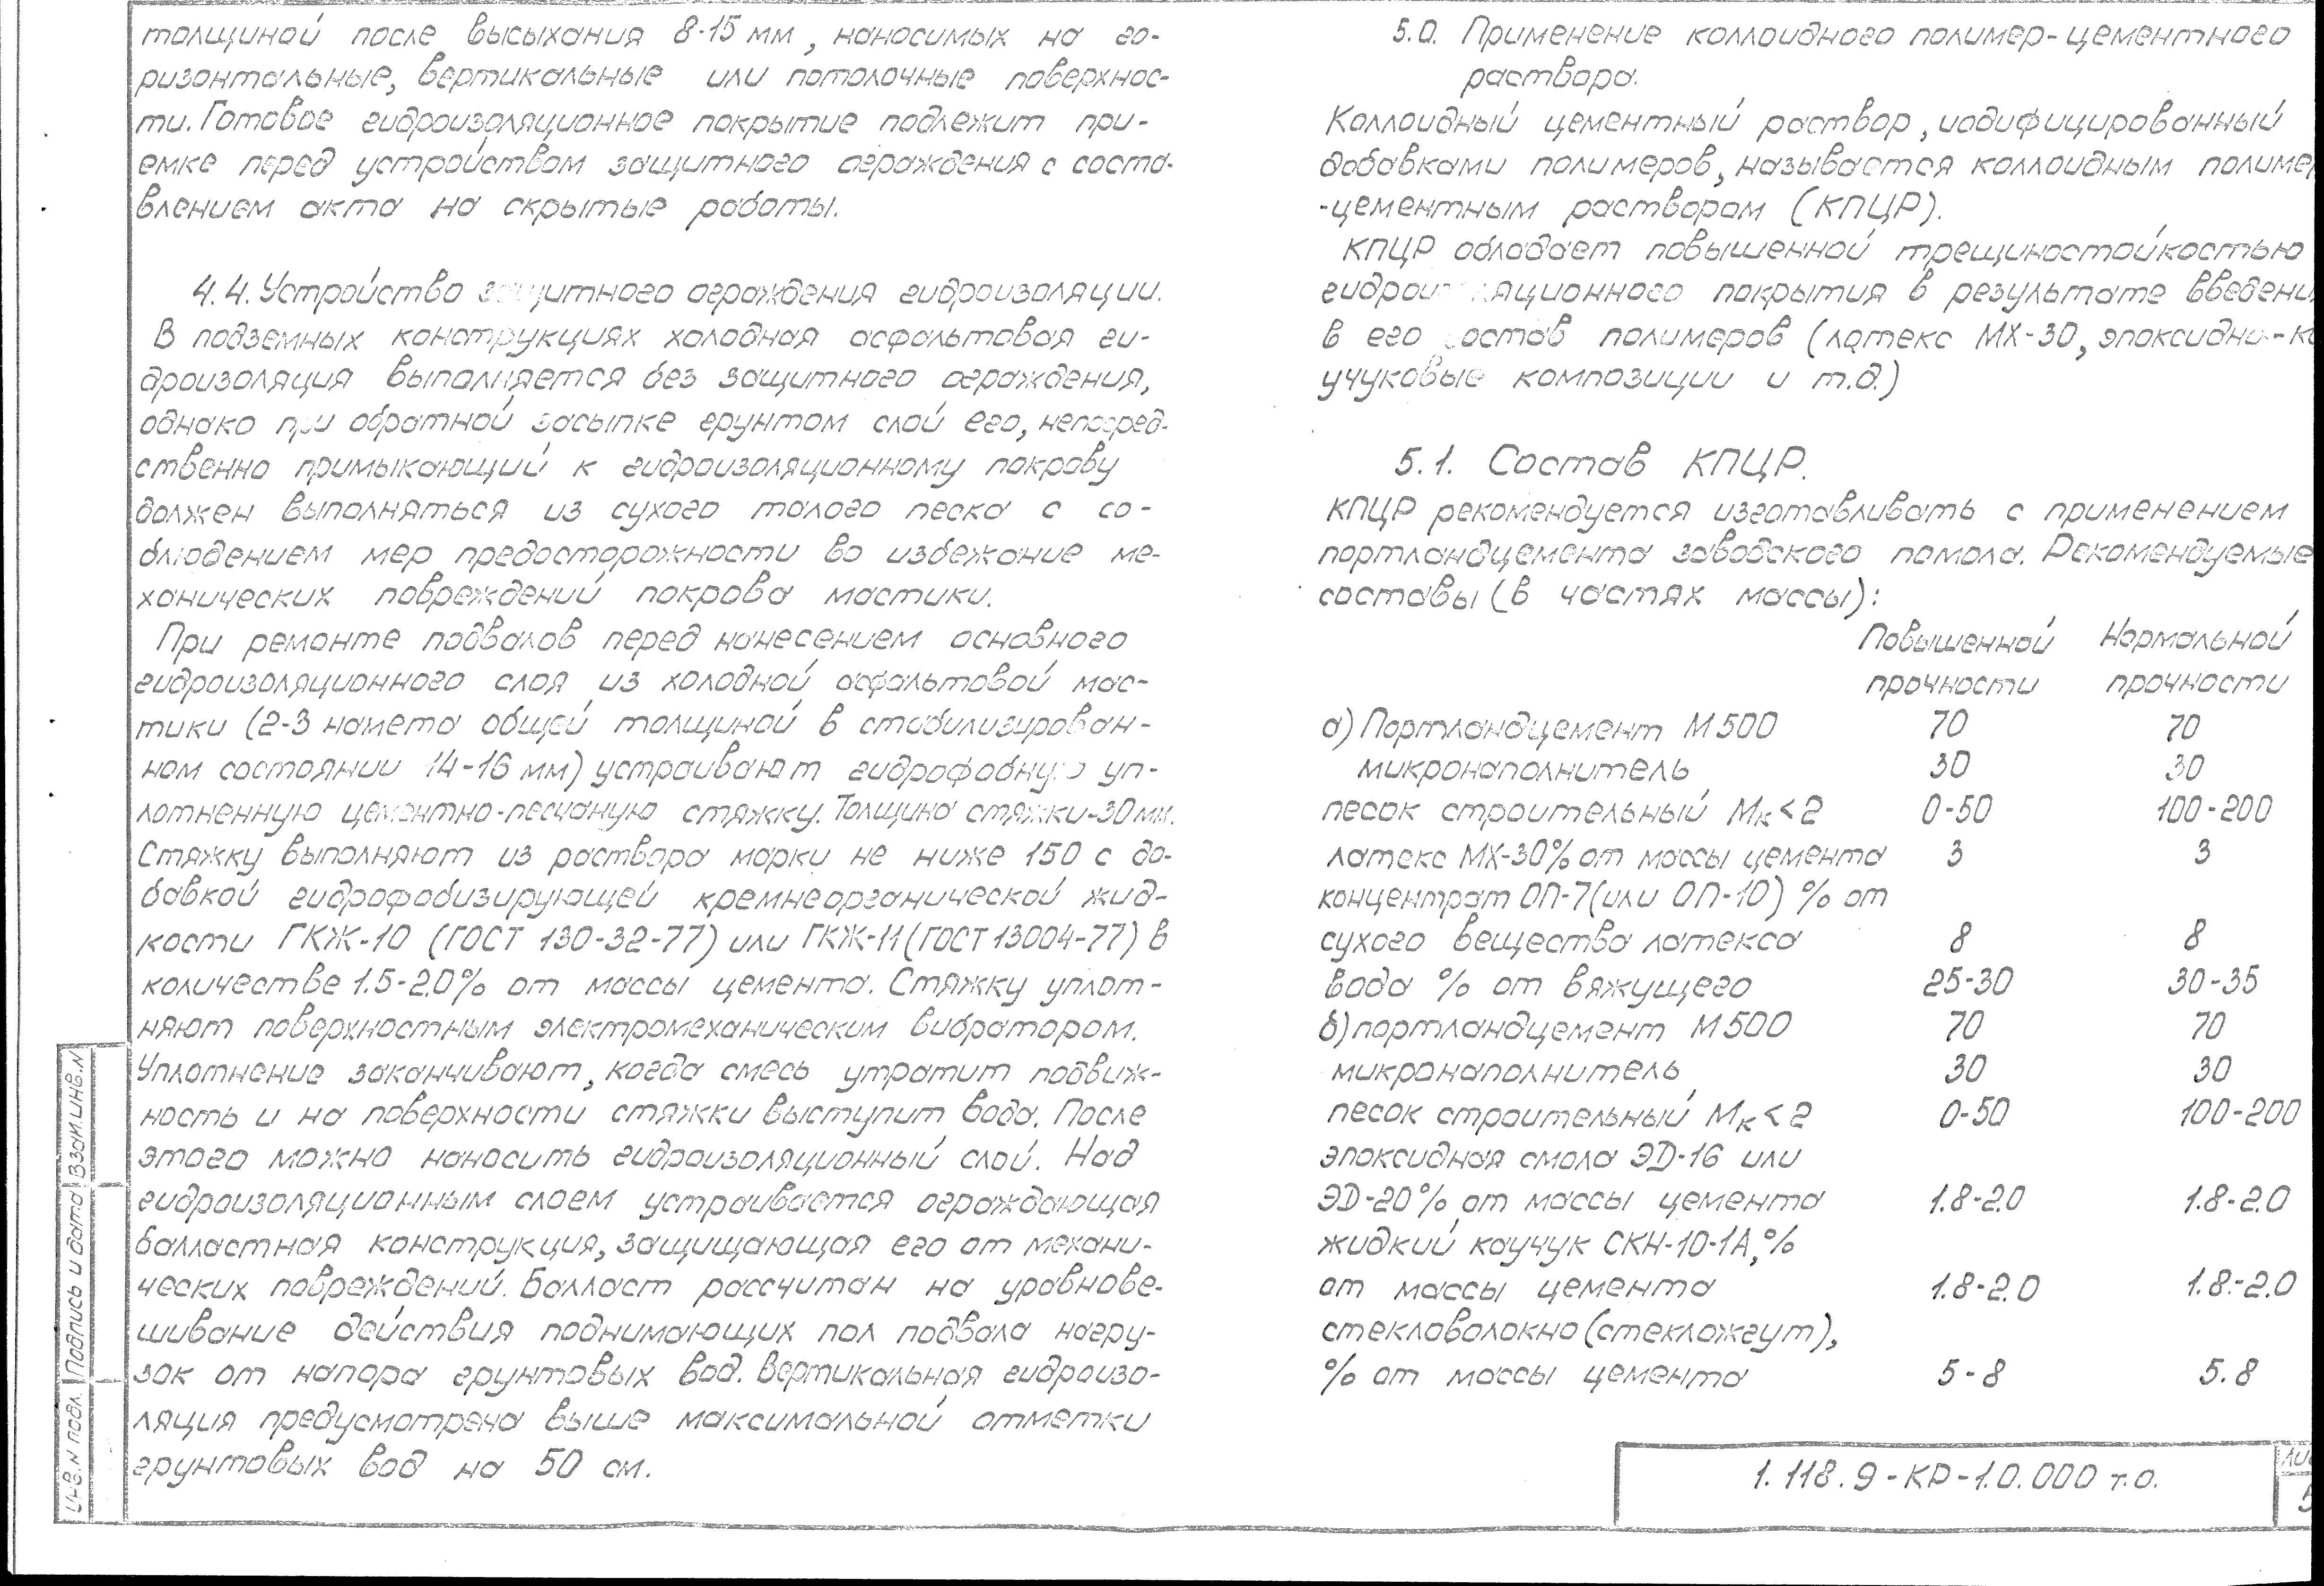 толщиной после высыхания 8-15 мм, наносимых на го-
ризонтальные, вертикальные или потолочные поверхнос-
ти. Готовое гидроизоляционное покрытие подлежит при-
емке перед устройством защитного ограждения с соста-
влением акта на скрытые работы.
4.4. Устройство защитного ограждения гидроизоляции.
В подземных конструкциях холодная асфальтовая ги-
дроизоляция выполняется без защитного ограждения,
однако при обратной засыпке грунтом слой его, непосред-
ственно примыкающий к гидроизоляционному покрову
должен выполняться из сухого талого песка с со-
блюдением мер предосторожности во избежание ме-
ханических повреждений покрова мастики.
При ремонте подвалов перед нанесением основного
гидроизоляционного слоя из холодной асфальтовой мас-
тики (2-3 намета общей толщиной в стабилизирован-
ном состоянии 14-16 мм) устраивают гидрофобную уп-
лотненную цементно-песчаную стяжку. Толщина стяжки-30мм.
Стяжку выполняют из раствора марки не ниже 150 с до-
бавкой гидрофобизирующей кремнеорганической жид-
кости ГКЖ-10 (ГОСТ 130-32-77) или ГКЖ-11 (ГОСТ 13004-77) в
количестве 1.5-2.0% от массы цемента. Стяжку уплот-
няют поверхностным электромеханическим вибратором.
Уплотнение заканчивают, когда смесь утратит подвиж-
ность и на поверхности стяжки выступит вода. После
этого можно наносить гидроизоляционный слой. Над
гидроизоляционным слоем устраивается ограждающая
балластная конструкция, защищающая его от механи-
ческих повреждений. Балласт рассчитан на уравнове-
шивание действия поднимающих пол подвала нагру-
зок от напора грунтовых вод. Вертикальная гидроизо-
ляция предусмотрена выше максимальной отметки
грунтовых вод на 50 см.
5.0. Применение коллоидного полимер-цементного
раствора.
Коллоидный цементный раствор, модифицированный
добавками полимеров, называется коллоидным полимер
-цементным раствором (КПЦР).
КПЦР обладает повышенной трещиностойкостью
гидроизоляционного покрытия в результате введени
в его состав полимеров (латекс МХ-30, эпоксидно-ка
учуковые композиции и т.д.)
5.1. Состав КПЦР.
КПЦР рекомендуется изготавливать с применением
портландцемента заводского помола. Рекомендуемые
составы (в частях массы):
Повышенной Нормальной
прочности прочности
а) Портландцемент М500 70 70
микронаполнитель 30 30
песок строительный Мк<2 0-50 100-200
латекс МХ-30% от массы цемента 3 3
концентрат ОП-7 (или ОП-10) % от
сухого вещества латекса 8 8
вода % от вяжущего 25-30 30-35
б) портландцемент М500 70 70
микронаполнитель 30 30
песок строительный Мк<2 0-50 100-200
эпоксидная смола ЭД-16 или
ЭД-20% от массы цемента 1.8-2.0 1.8-2.0
жидкий каучук СКН-10-1А,%
от массы цемента 1.8-2.0 1.8-2.0
стекловолокно (стекложгут),
% от массы цемента 5-8 5.8
Инв.N подл. Подпись и дата Взам.инв.N
1.118.9-КР-1.0.000 т.о.